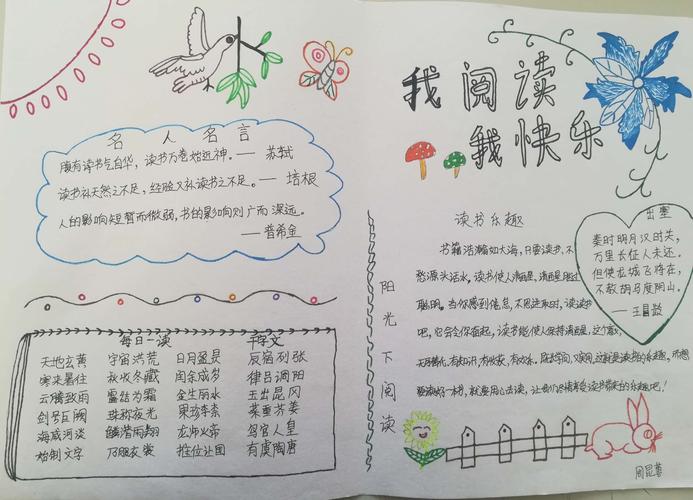 名人名言
腹有诗书气自华，读书万卷始通神。— 苏轼
读书补天然之不足，经验又补读书之不足。— 培根
人的影响短暂而微弱，书的影响则广而深远。
— 普希金
每日一读 千字文
天地玄黄 宇宙洪荒 日月盈昃 辰宿列张
寒来暑往 秋收冬藏 闰余成岁 律吕调阳
云腾致雨 露结为霜 金生丽水 玉出昆冈
剑号巨阙 珠称夜光 果珍李柰 菜重芥姜
海咸河淡 鳞潜羽翔 龙师火帝 鸟官人皇
始制文字 乃服衣裳 推位让国 有虞陶唐
我阅读
我快乐
读书乐趣
书籍浩瀚如大海，只要读书，不
愁源头活水。读书使人清醒，清醒胜过
聪明。当你感到倦怠，不思进取时，读读书
吧，它会令你奋起，读书能使人保持清醒，这个
要读好一本书，就要用心去读，让我们尽情享受读书带来的乐趣吧！
阳光下阅读
出塞
秦时明月汉时关，
万里长征人未还。
但使龙城飞将在，
不教胡马度阴山。
— 王昌龄